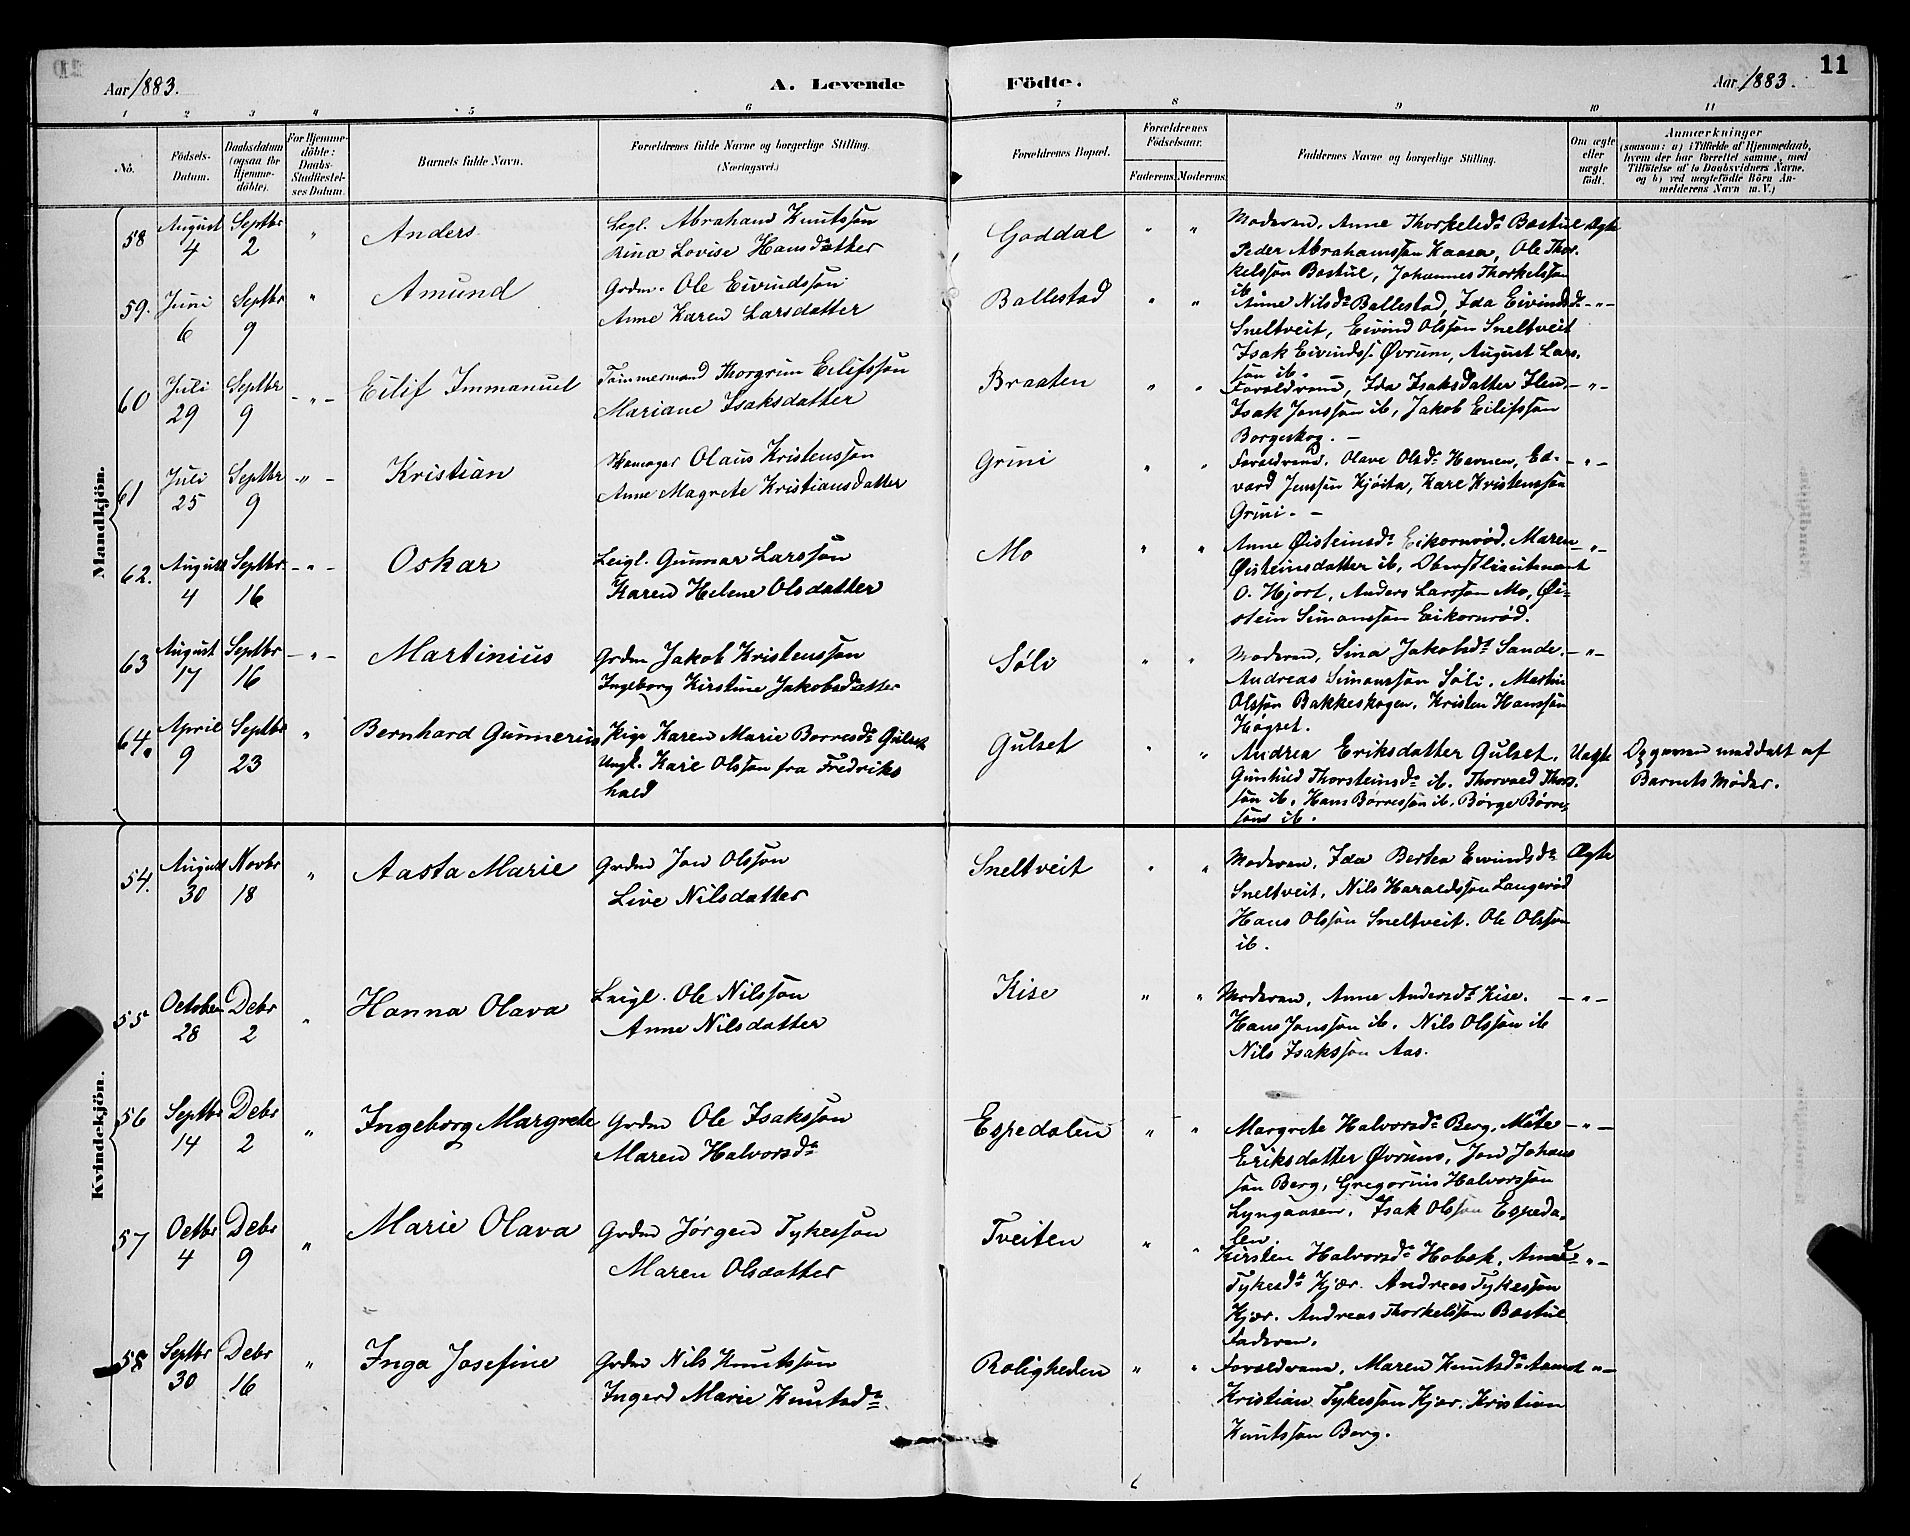 Aar 1883.
A. Levende Födte.
Aar 1883.
11
1 2 3 4 5 6 7 8 9 10 11
No.
Födsels-Datum.
Daabsdatum (ogsaa for Hjemmedöbte).
For Hjemmedöbte: Daabs-Stadfæstelses Datum.
Barnets fulde Navn.
Forældrenes fulde Navne og borgerlige Stilling. (Næringsvei.)
Forældrenes Bopæl.
Forældrenes Födselsaar.
Faderens. Moderens.
Faddernes Navne og borgerlige Stilling.
Om ægte eller uægte födt.
Anmærkninger (saasom: a) i Tilfælde af Hjemmedaab, hvem der har forrettet samme, med Tilföielse af to Daabsvidners Navne, og b) ved uægtefödte Börn Anmelderens Navn m. V.)
Mandkjön.
58 August 4 Septbr 2 " Anders
Legl. Abraham Knutssøn
Rina Lovise Hansdatter
Goddal " "
Moderen, Anne Thorkelsdr Bostul Ægte
Peder Abrahamssøn Kaasa, Ole Thor-
kelssøn Bostul, Johannes Thorkelssøn
ib
59. Juni 6 Septbr 9 " Amund
Grdm. Ole Eivindssøn
Anne Karen Larsdatter
Ballestad " "
Anne Nilsdr Ballestad, Ida Eivindsdr -"-
Sneltveit, Eivind Olssøn Sneltveit
Isak Eivindss. Øvrum, August Lars-
søn ib.
60 Juli 29 Septbr 9 -"- Eilif Immanuel
Tømmermand Thorgrim Eilifssøn
Mariane Isaksdatter
Braaten " "
Forældrene, Ida Isaksdatter Ilen, -"-
Isak Jonssøn ib, Jakob Eilifssøn
Borgeskog. -
61 Juli 25 Septbr 9 -"- Kristian
Olaus Kristenssøn
Anne Magrete Kristiansdatter
Grini " "
Forældrene. Olave Olsdr Havnen, Ed- -"-
vard Jenssøn Kjøita, Karl Kristenssøn
Grini. -
62. August 4 Septbr. 16 -"- Oskar
Leigl. Gunnar Larssøn
Karen Helene Olsdatter
Mo " "
Anne Øisteinsdr Eikornrød. Maren -"-
Øisteinsdatter ib, Oberstlieutenant
O. Hjort, Anders Larssøn Mo, Øi-
stein Simonssøn Eikornrød.
63 August 17 Septbr 16 -"- Martinius
Grdm Jakob Kristenssøn
Ingeborg Kirstine Jakobsdatter
Søli " "
Moderen, Sina Jakobsdr Sande. -"-
Andreas Simonssøn Søli. Martin
Olssøn Bakkeskogen. Kristen Hanssøn
Høgset.
64. April 9 Septbr 23 " Bernhard Gunnerius
Pige Karen Marie Borresdr Gulset
Ungk. Karl Olssøn fra Fredriks
hald
Gulset " "
Andrea Eriksdatter Gulset. Uægte
Gunhild Thorsteinsdr ib. Thorvald Thors-
søn ib. Hans Børressøn ib. Børge Børre-
søns ib.
Opgaven meddelt af
Barnets Moder.
Kvindekjön.
54. August 30 Novbr 18 " Aasta Marie
Grdm Jon Olssøn
Live Nilsdatter
Sneltveit " "
Moderen, Ida Bertea Eivindsdr Ægte
Sneltveit, Nils Haraldssøn Langerød
Hans Olssøn Sneltveit. Ole Olssøn
ib.
55 October 28 Debr 2 " Hanna Olava
Leigl. Ole Nilssøn
Anne Nilsdatter
Kise " "
Moderen, Anne Andersdr Kise. -"-
Hans Jonssøn ib. Nils Olssøn ib
Nils Isakssøn Aas.
56 Septbr 14 Debr 2 " Ingeborg Margrete
Grdm Ole Isakssøn
Maren Halvorsdr
Espedalen " "
Margrete Halvorsdr Berg, Mæte -"-
Eriksdatter Øvrum, Jon Johans
søn Berg, Gregorius Halvorssøn
Lyngaasen, Isak Olssøn Espeda-
len.
57 Octbr 4 Debr 9 " Marie Olava
Grdm Jørgen Tykessøn
Maren Olsdatter
Tveiten " "
Kirsten Halvorsdr Hobæk. -"-
Tykesdr Kjær. Andreas Tykessøn
Kjær. Andreas Thorkelssøn Bostul
Faderen.
58 Septbr 30 Debr 16 " Inga Josefine
Grdm Nils Knutssøn
Ingerd Marie Knutsdr
Roligheden " "
Forældrene, Maren Knutsdr -"-
Kristian Tykessøn Kjær. Kristian
Knutssøn Berg.